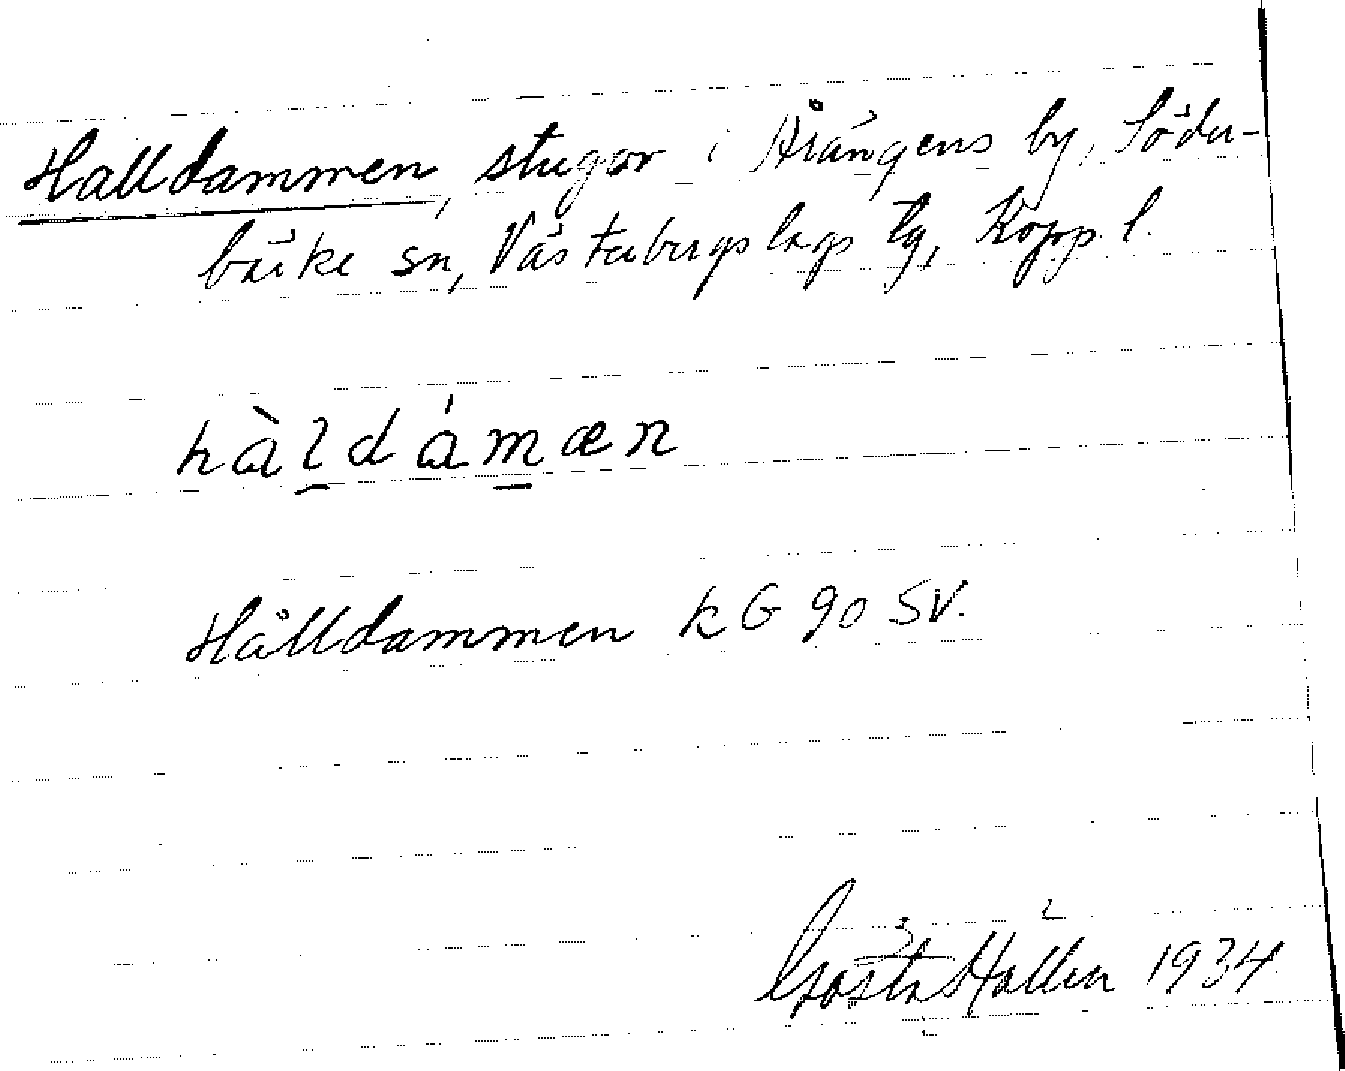 Halldammen, stugor i Årängens by, Söder-
bärke sn, Västerbergslags tg, Kopp. l.
hàldámæn
Hålldammen k G 90 SV.
Gösta Hallén 1934